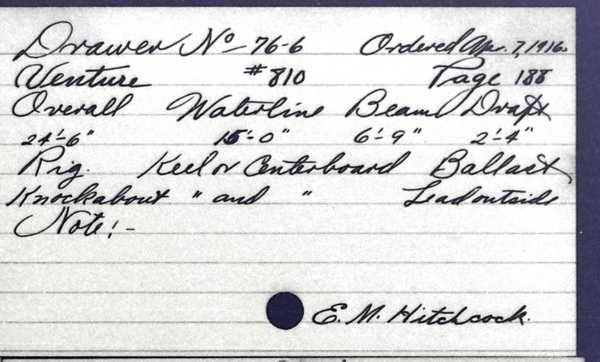 Drawer No 76-6 Ordered Apr. 7, 1916.
Venture #810 Page 188
Overall Waterline Beam Draft
24'-6" 15'-0" 6'-9" 2'-4"
Rig. Keel or Centerboard Ballast
Knockabout " and " Lead outside
Note:-
E. M. Hitchcock.